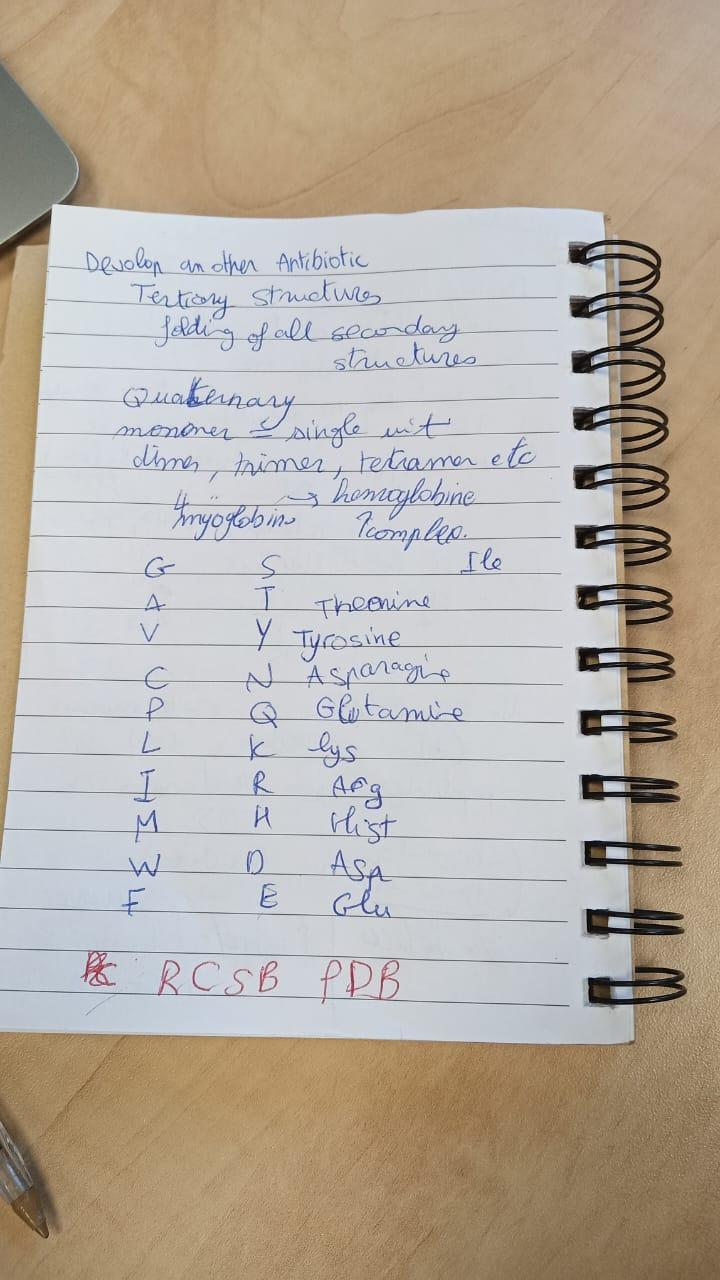 Develop an other Antibiotic
Tertiary structures
folding of all seconday
structures
Quaternary
monomer = single unit
dimer, trimer, tetramer etc
4myoglobins → hemoglobine
complex.
G S Ile
A T Theonine
V Y Tyrosine
C N Asparagine
P Q Glutamine
L K lys
I R Arg
M H Hist
W D Asp
F E Glu
RCSB PDB